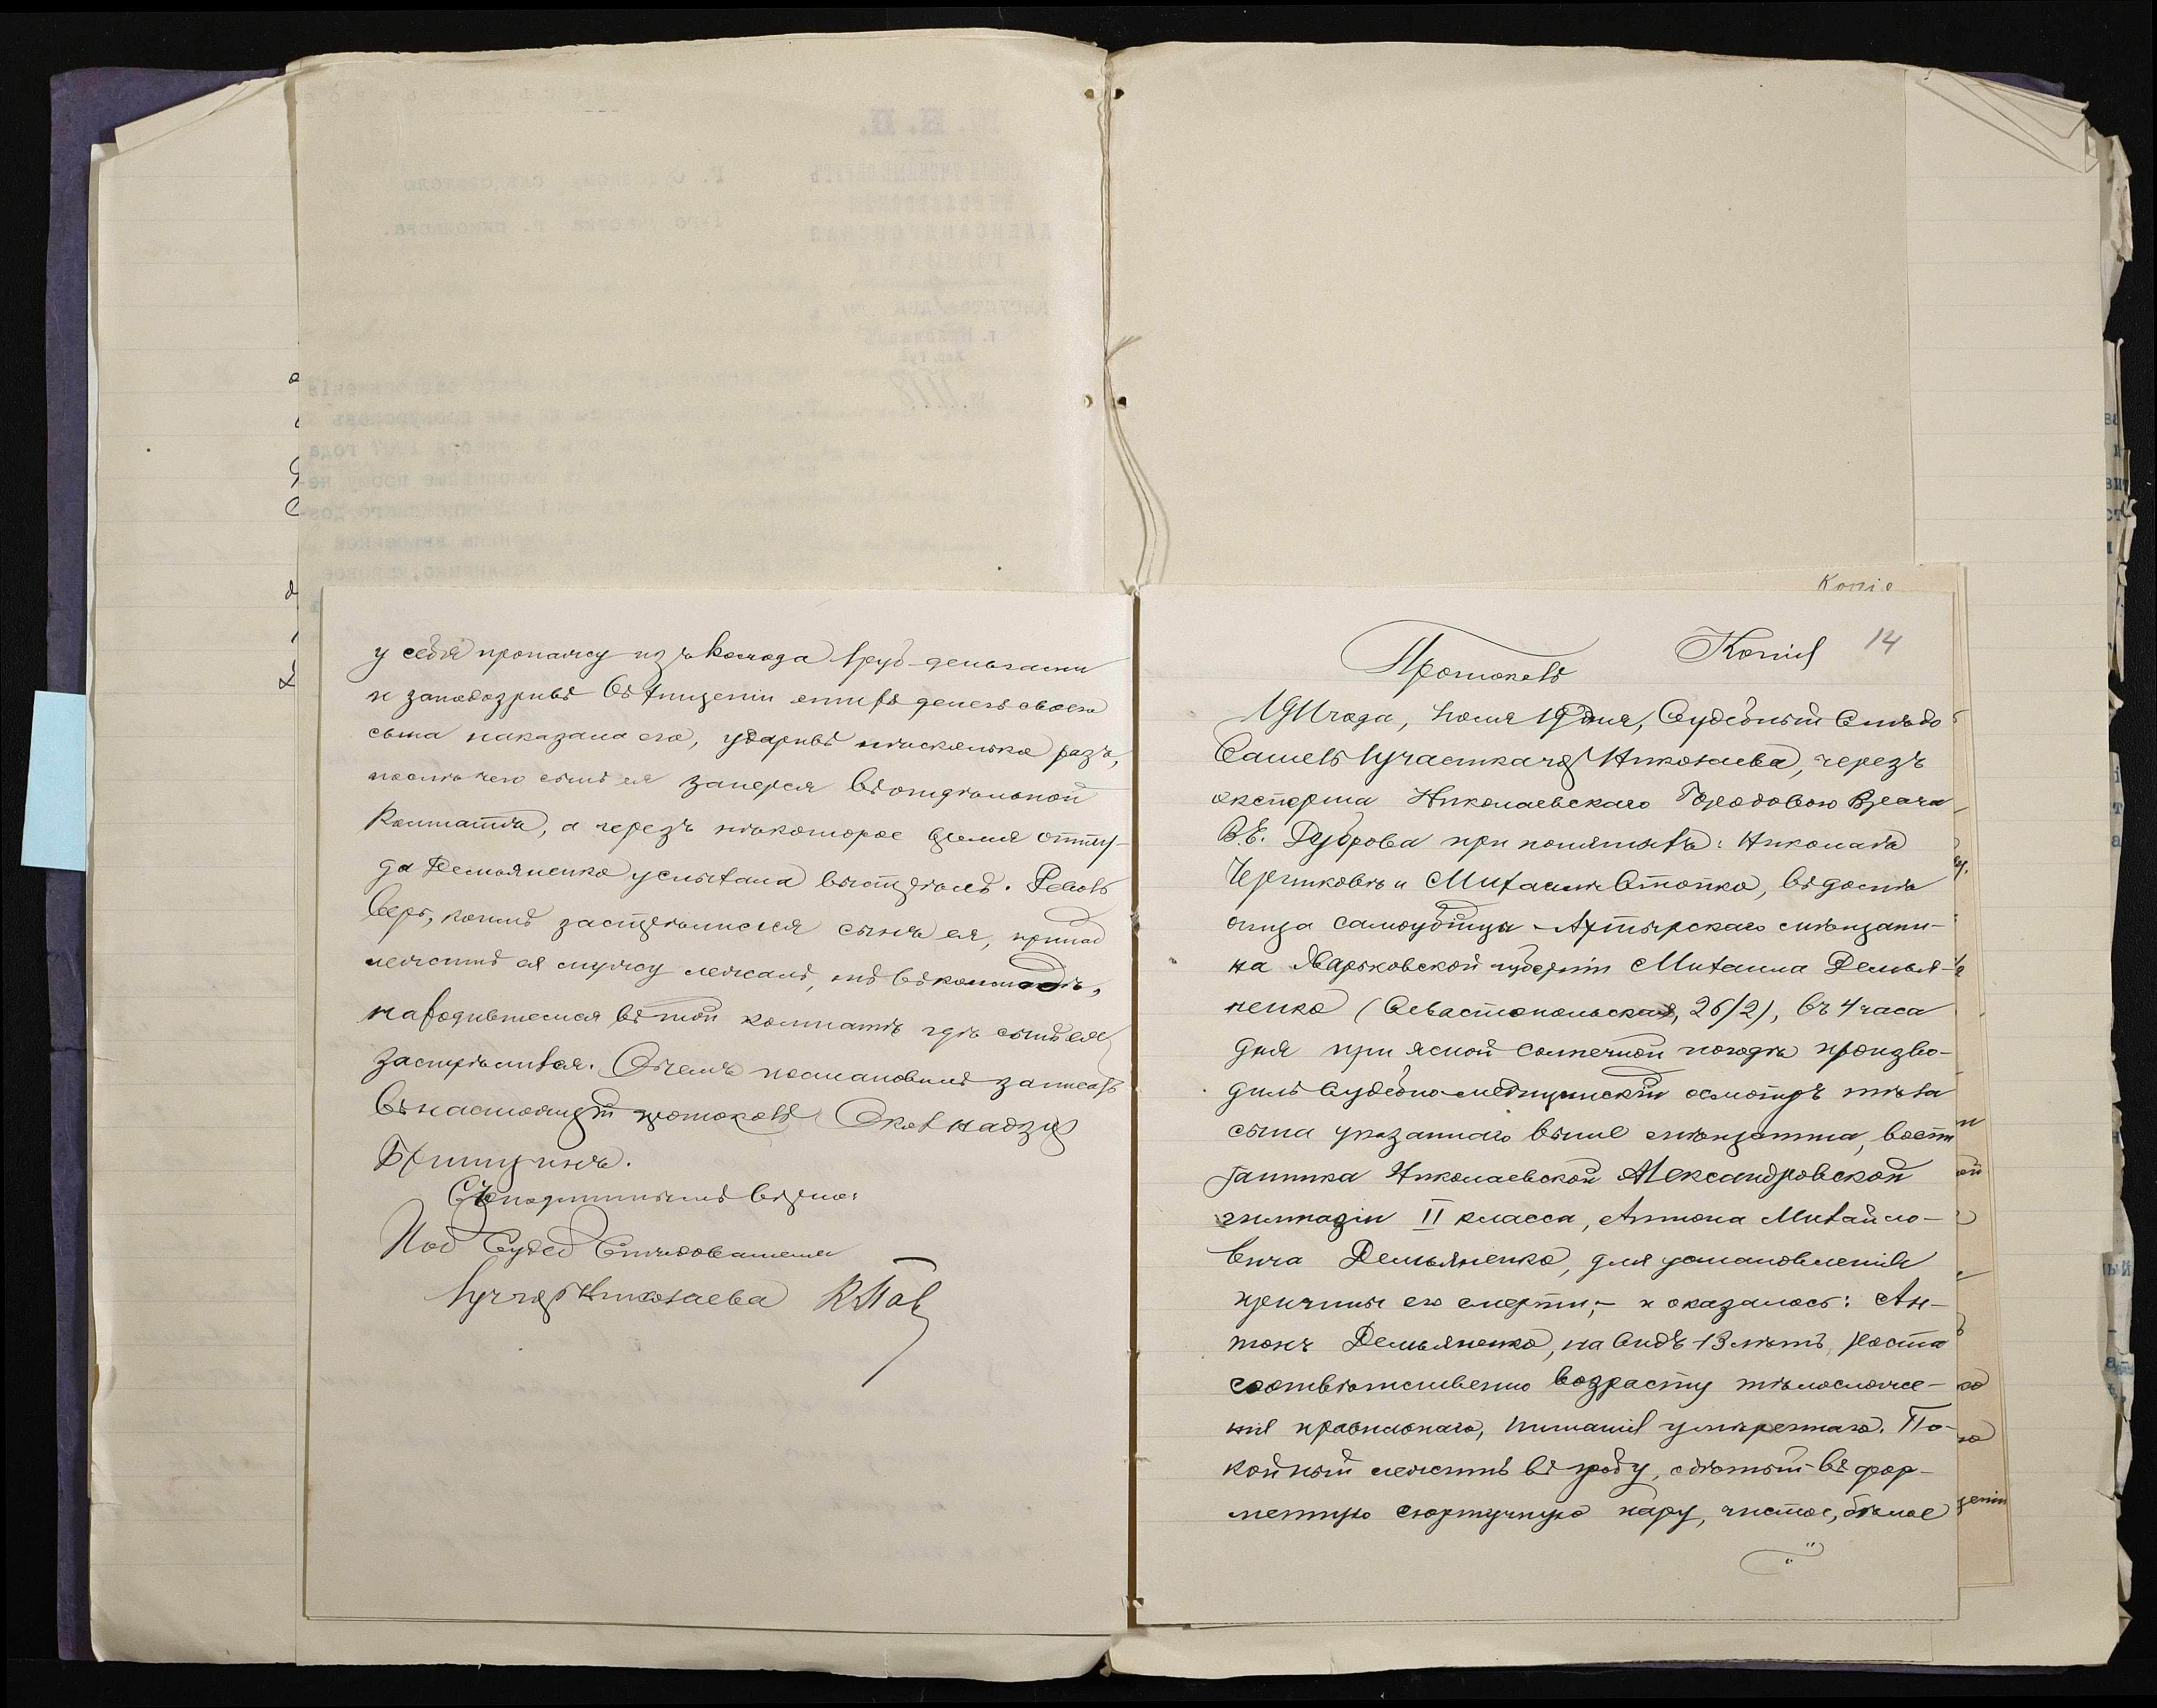 у себя пропажу изъ комода 1 руб. деньгами
и заподозривъ въ хищеніи этихъ денегъ своего
сына наказала его, ударивъ нѣсколько разъ,
послѣ чего сынъ ея заперся въ отдѣльной
комнатѣ, а черезъ нѣкоторое время отту-
да Демьяненко услыхала выстрѣлъ. Револь
веръ, коимъ застрѣлился сынъ ея, принад
лежитъ ея мужу лежалъ въ комодѣ,
находившемся въ той комнатѣ гдѣ сынъ ея
застрѣлился. О чемъ постановилъ записать
въ настоящій протоколъ Окол надзир
Съ подлиннымъ вѣрно:
Судеб Слѣдователя
1 уч гор Николаева
Копіе
14
Копія
Протоколъ
1911 года, 19 дня, Судебный Слѣдо
ватель 1 участка гор Николаева, черезъ
эксперта Николаевскаго Городового Врача
В.Е. Дуброва при понятыхъ: Николаѣ
Чериковѣ и Михаилѣ Стопко, въ домѣ
отца самоубійцы - Ахтырскаго мѣщани-
на Харьковской губерніи Михаила Демья-
ненко (Севастопольская, 26/2), въ 4 часа
дня при ясной солнечной погодѣ произво-
дилъ Судебно-медицинскій осмотръ тѣла
сына указаннаго выше мѣщанина, воспи
танника Николаевской Александровской
гимназіи II класса, Антона Михайло-
вича Демьяненко, для установленія
причины его смерти, - и оказалось: Ан-
тонъ Демьяненко, на видъ 13 лѣтъ, роста
соотвѣтственно возрасту тѣлосложе-
нія правильнаго, питанія умѣреннаго. По-
койный лежитъ въ гробу, одѣтый въ фор-
менную сюртучную пару, чистое, бѣлое